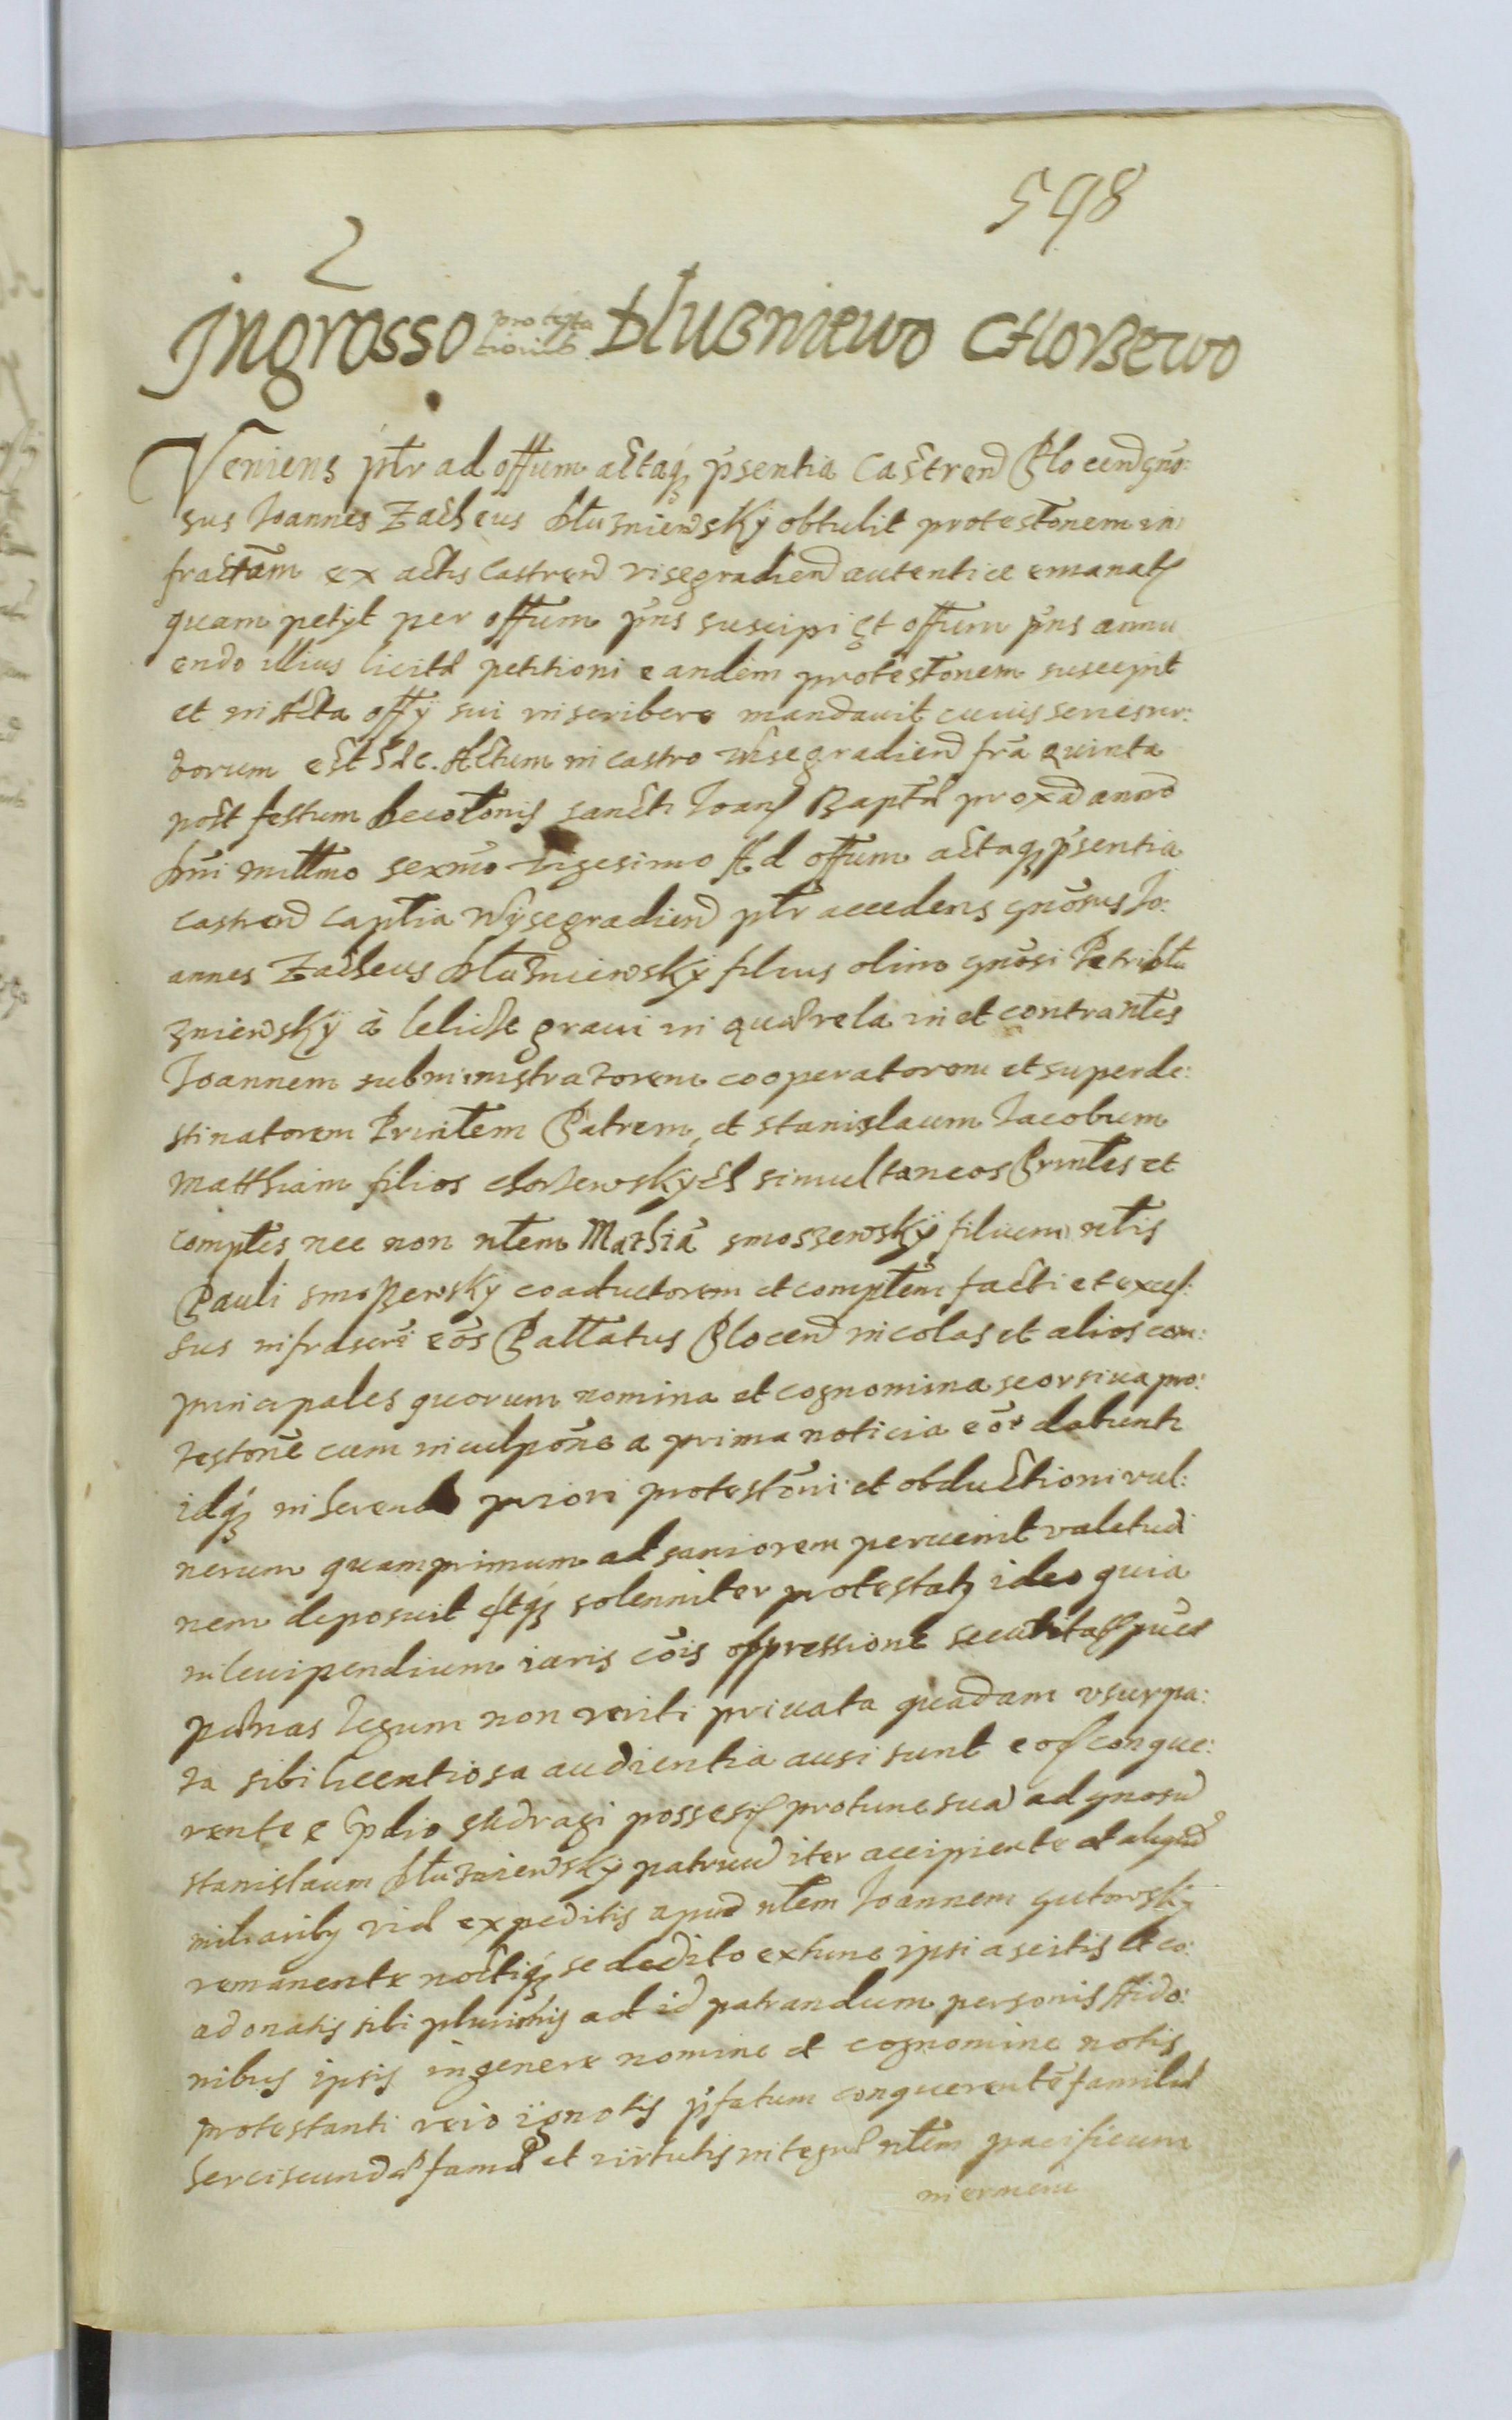 598
2
Jngrosso protesta
tionis Dłuzniewo Chorzewo
Veniens pltr ad offum actaq pñsentia Castren Plocen gño:
sus Joannes Zacheus Dłuzniewsky obtulit protestonem in
fractam ex actis Castren Visegradien autentice emanat
quam petyt per offum pñs suscipi Et offum pñs annu
endo illius licitæ petitioni eandem protestonem suscepit
et in Acta offy sui inscribere mandavit cuius series ver:
borum est hæc. Actum in castro Visegradien fria quinta
post festum Decolonis sancti Joan Baptæ prox anno
Dni millmo sexmo vigesimo Ad offum actaq pñsentia
castren Captia Wysegradien pltr accedens gñosus Jo:
annes Zacheus Dłuzniewsky filius olim gñosi Petri Dłu
zniewsky à Leliche gravi in quærela in et contra nłes
Joannem subministratorem cooperatorem et superde:
stinatorem Prinłem Patrem, et Stanislaum Jacobum
Matthiam filios Chorzewskych simultaneos Prinłes et
complĕs nec non nłem Mathiā Smoszewsky filium nłis
Pauli Smoszewsky coaductorem et complem facti et exces:
sus infrascri eos Pallatus Plocen incolas et alios com:
principales quorum nomina et cognomina seorsiva pro:
testone cum inculpone a prima noticia eor dabunt
idq inhærendo priori protestoni et obductioni vul:
nerum quamprimum ad saniorem pervenit valetudi
nem deposuit Estq solenniter protestat ideo quia
in levipendium iuris cois oppressione securitat
pœnas legum non veriti privata quadam usurpa:
ta sibi licentiosa audientia ausi sunt eor conque:
rente e prdio possess protunc sua ad gnosu
Stanislaum Dłuzniewsky patruu iter accipiente et aliquo
miliarib vid expeditis apud nłem Joannem Gutowsky
remanente noctiq se dedito extunc ipsi ascitis et co:
adonatis sibi plurimis ad id patrandum personis
nibus ipsis in genere nomine et cognomine notis
protestanti vero ignotis pfatum conquerentē familiæ
herciscundæ famæ et virtutis integræ nłem pacificum
inermem